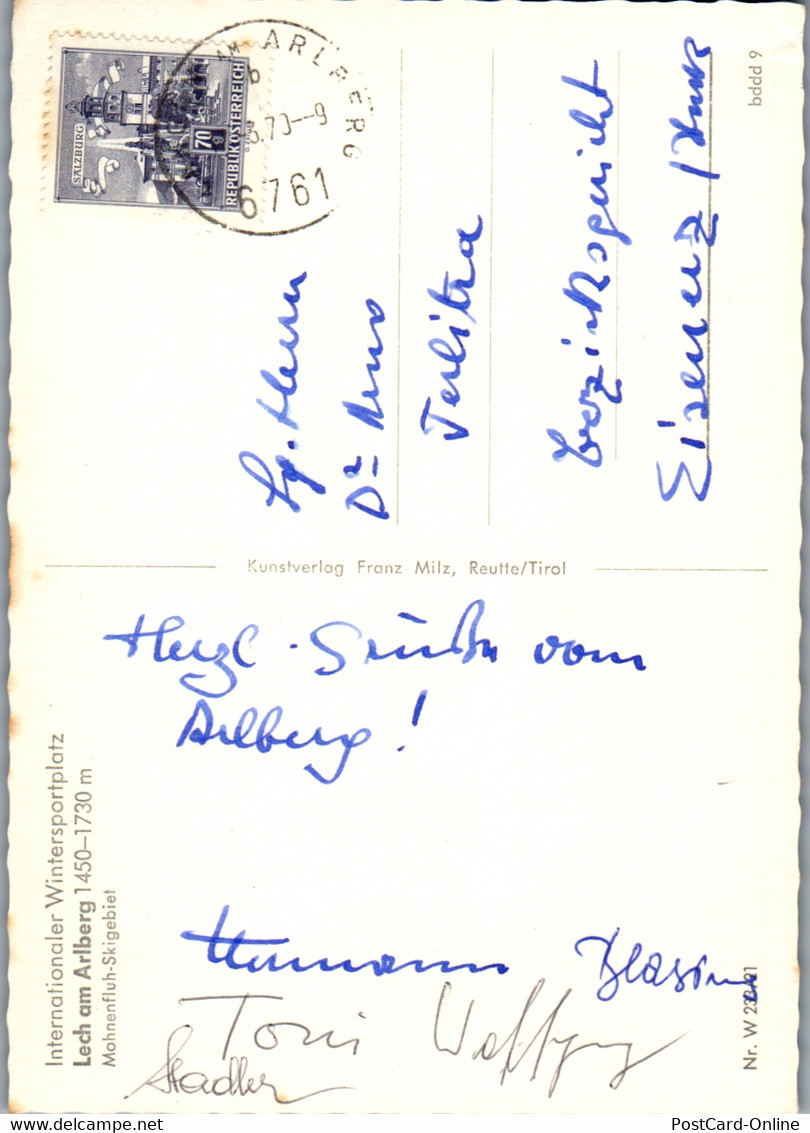 SALZBURG
70 g
REPUBLIK ÖSTERREICH
AM ARLBERG
b
70--9
6761
Herrn
Dr. Arno
Terlitza
Bezirksgericht
Eisenerz /
bddd 9
Kunstverlag Franz Milz, Reutte/Tirol
Herzl. Grüße vom
Arlberg!
Hermann
Toni Wolfgang
Stadler
Internationaler Wintersportplatz
Lech am Arlberg 1450–1730 m
Mohnenfluh-Skigebiet
Nr. W
PostCard-Online